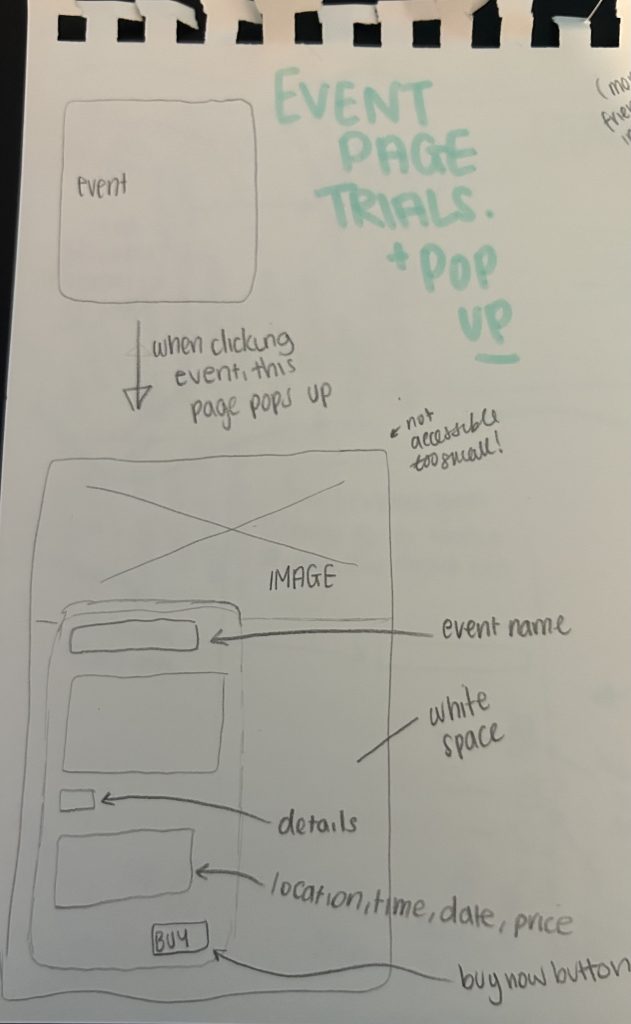 EVENT
PAGE
TRIALS.
+ POP
UP
event
when clicking
event, this
page pops up
not
accessible
too small!
IMAGE
event name
white
space
details
location, time, date, price
BUY
buy now button